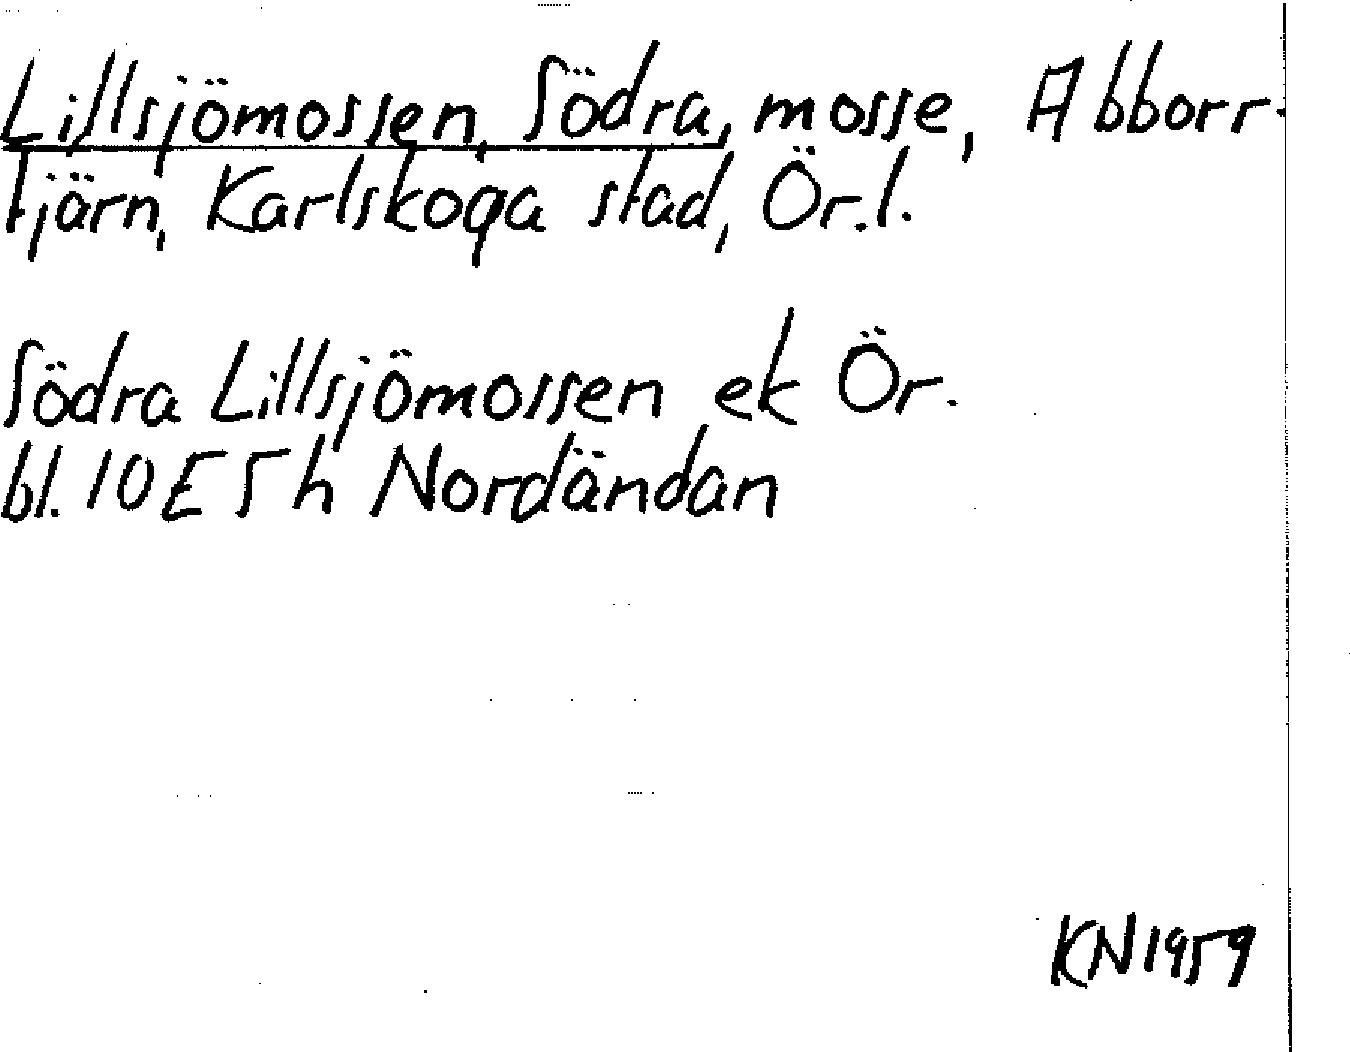 Lillsjömossen, Södra, mosse, Abborr-
tjärn, Karlskoga stad, Ör.l.
Södra Lillsjömossen ek Ör.
bl. 10E5h Nordändan
KN1959